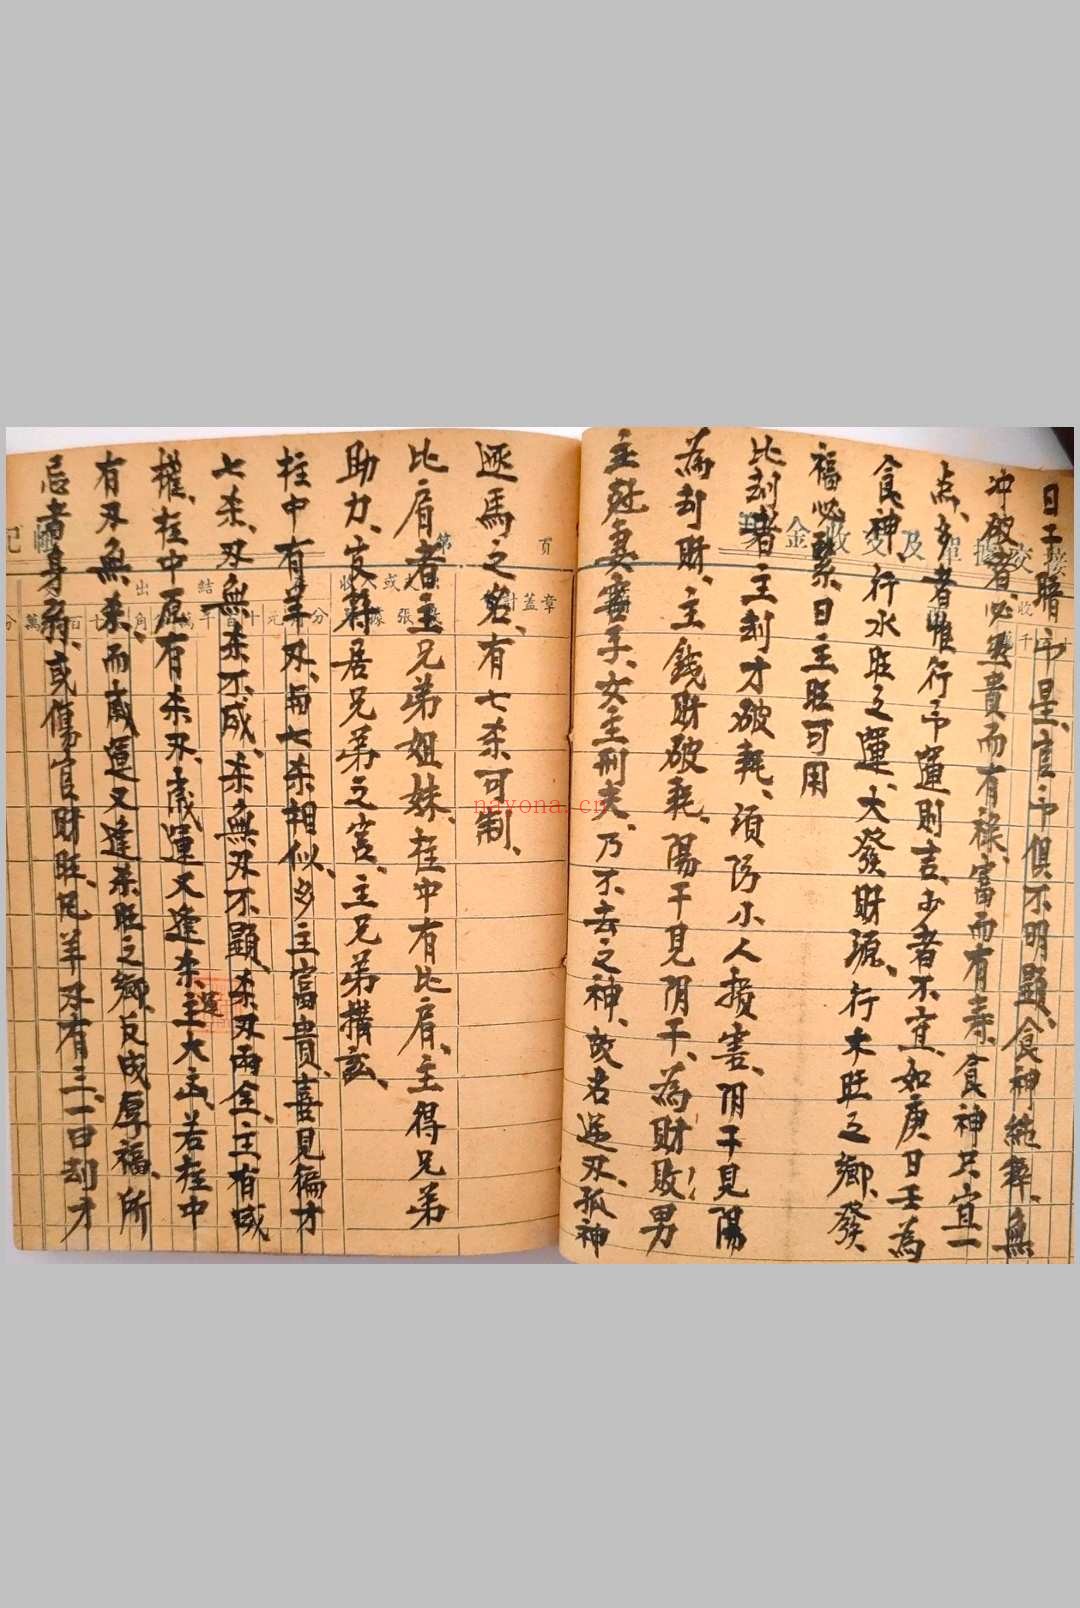 日干暗中星、官印俱不明顯、食神純粹、無
冲破者、必主貴而有祿、富而有壽、食神只宜一
点、多者惟行印運則吉、少者不宜、如庚日壬為
食神、行水旺之運、大發財源、行木旺之鄉、發
福必緊、日主旺可用
比刦者主刦才破耗、須防小人損害、阴干見陽
為刦財、主錢財破耗、陽干見阴干、為財敗、男
主尅妻害子、女主刑夫、乃不去之神、故名逆刃、孤神
逐馬之名、有七杀可制、
比肩者主兄弟姐妹、柱中有比肩、主得兄弟
助力、官符居兄弟之宮、主兄弟搆訟、
柱中有羊刃、與七杀相似、多主富貴、喜見偏才
七杀、刃無杀不威、杀無刃不顯、杀刃兩全、主有威
權、柱中原有杀刃、歲運又逢杀運、主大凶、若柱中
有刃無杀、而歲運又逢杀旺之鄉、反成厚福、所
忌者身弱、或傷官財旺、凡羊刃有三、一曰刦才
第 頁
現金收支及單據交接
nayona.cn